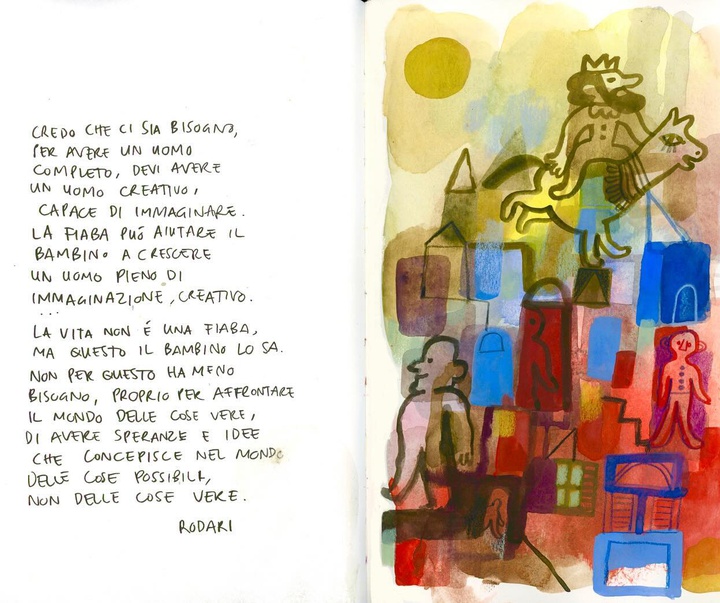 CREDO CHE CI SIA BISOGNO,
PER AVERE UN UOMO
COMPLETO, DEVI AVERE
UN UOMO CREATIVO,
CAPACE DI IMMAGINARE.
LA FIABA PUÓ AIUTARE IL
BAMBINO A CRESCERE
UN UOMO PIENO DI
IMMAGINAZIONE, CREATIVO.
...
LA VITA NON É UNA FIABA,
MA QUESTO IL BAMBINO LO SA.
NON PER QUESTO HA MENO
BISOGNO, PROPRIO PER AFFRONTARE
IL MONDO DELLE COSE VERE,
DI AVERE SPERANZE E IDEE
CHE CONCEPISCE NEL MONDO
DELLE COSE POSSIBILI,
NON DELLE COSE VERE.
RODARI